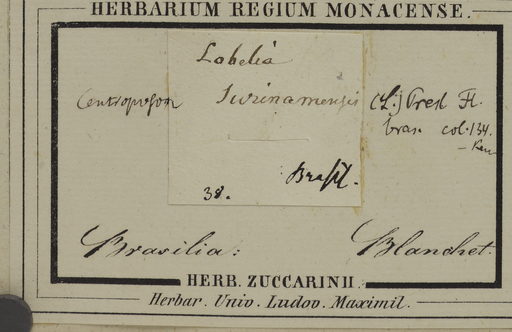 HERBARIUM REGIUM MONACENSE.
Lobelia
Centropogon Surinamensis (L.) Presl Fl.
bras. col. 134.
Brasil.
38.
Brasilia: Blanchet.
HERB. ZUCCARINII.
Herbar. Univ. Ludov. Maximil.